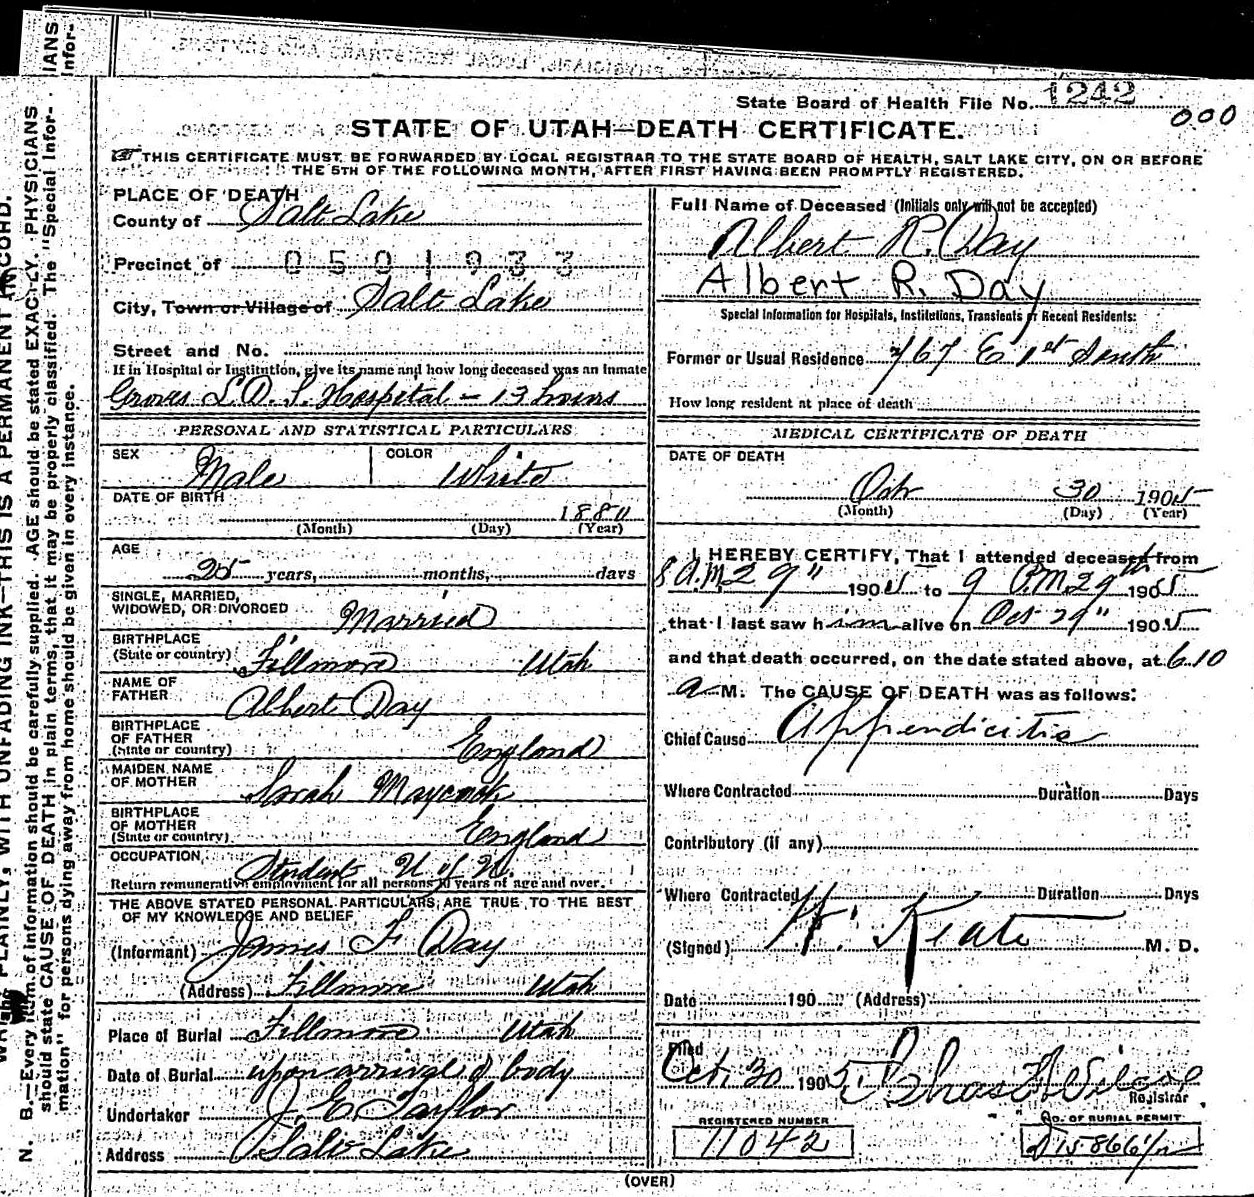 State Board of Health File No. 1242
000
STATE OF UTAH—DEATH CERTIFICATE.
THIS CERTIFICATE MUST BE FORWARDED BY LOCAL REGISTRAR TO THE STATE BOARD OF HEALTH, SALT LAKE CITY, ON OR BEFORE
THE 5TH OF THE FOLLOWING MONTH, AFTER FIRST HAVING BEEN PROMPTLY REGISTERED.
PLACE OF DEATH
County of Salt Lake
Precinct of 0501933
City, Town or Village of Salt Lake
Street and No.
If in Hospital or Institution, give its name and how long deceased was an inmate
Groves L.D.S. Hospital - 13 hours
PERSONAL AND STATISTICAL PARTICULARS
SEX Male COLOR White
DATE OF BIRTH
1880
(Month) (Day) (Year)
AGE
25 years, months, days
SINGLE, MARRIED,
WIDOWED, OR DIVORCED Married
BIRTHPLACE
(State or country) Fillmore Utah
NAME OF
FATHER Albert Day
BIRTHPLACE
OF FATHER
(State or country) England
MAIDEN NAME
OF MOTHER Sarah Maycock
BIRTHPLACE
OF MOTHER
(State or country) England
OCCUPATION Student U of U.
Return remunerative employment for all persons 10 years of age and over.
THE ABOVE STATED PERSONAL PARTICULARS ARE TRUE TO THE BEST
OF MY KNOWLEDGE AND BELIEF
(Informant) James F Day
(Address) Fillmore Utah
Place of Burial Fillmore Utah
Date of Burial upon arrival of body
Undertaker J. E. Taylor
Address Salt Lake
Full Name of Deceased (Initials only will not be accepted)
Albert R. Day
Albert R. Day
Special Information for Hospitals, Institutions, Transients or Recent Residents:
Former or Usual Residence 767 E 1st South
How long resident at place of death
MEDICAL CERTIFICATE OF DEATH
DATE OF DEATH
Oct 30 1905
(Month) (Day) (Year)
I HEREBY CERTIFY, That I attended deceased from
8 A.M. 29" 1905 to 9 P.M. 29th 1905
that I last saw him alive on Oct 29" 1905
and that death occurred, on the date stated above, at 6.10
a M. The CAUSE OF DEATH was as follows:
Chief Cause Appendicitis
Where Contracted Duration Days
Contributory (if any)
Where Contracted Duration Days
(Signed) M. D.
Date 190 (Address)
Filed
Oct. 30 1905
Registrar
REGISTERED NUMBER
11042
No. OF BURIAL PERMIT
(OVER)
N. B.—Every item of information should be carefully supplied. AGE should be stated EXACTLY. PHYSICIANS
should state CAUSE OF DEATH in plain terms, that it may be properly classified. The "Special Infor-
mation" for persons dying away from home should be given in every instance.
PLAINLY, WITH UNFADING INK—THIS IS A PERMANENT RECORD.
IANS
Infor-